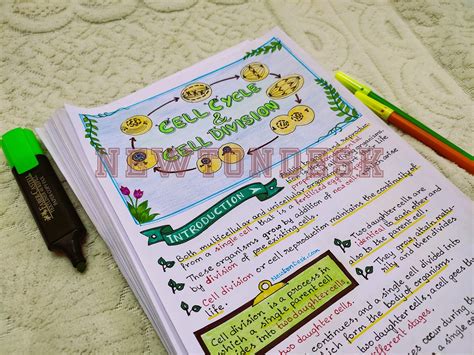 CELL CYCLE
&
CELL DIVISION
NEWTONDESK
INTRODUCTION
Both multicellular and unicellular organisms reproduce
from a single cell, that is a fertilized egg
These organisms grow by addition of
by division of pre existing cells.
Cell division or cell reproduction maintains the continuity of
life.
NewtonDesk.com
Cell division is a process in
which a single parent cell
into two daughter
cells.
Two daughter cells are
identical to each other and
also to the parent cell.
They grow
and then divides
two daughter cells.
continues, and a single cell divided into
which form the body of organisms.
two daughter cells, a cell goes th
different stages.
occurs during
parent cell